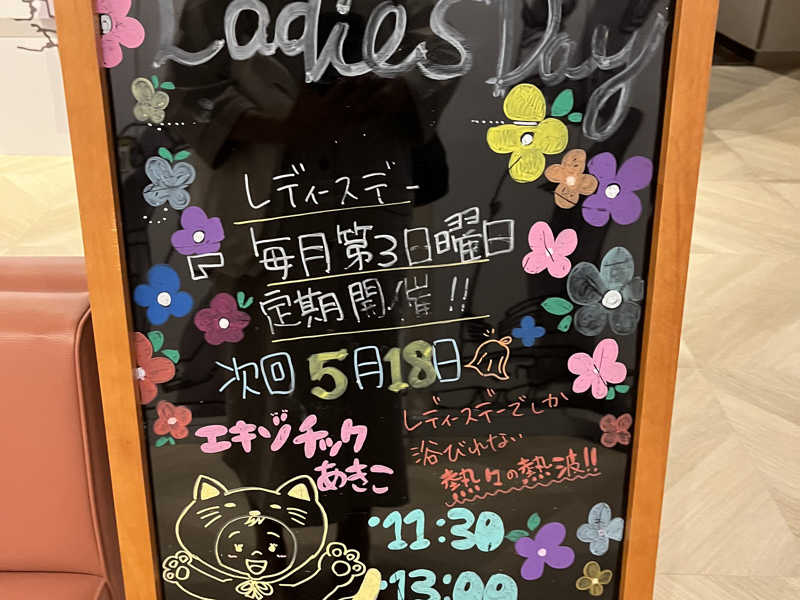 Ladies Day
レディースデー
毎月第3日曜日
定期開催!!
次回5月18日
レディースデーでしか
浴びれない
熱々の熱波!!
エキゾチック
あきこ
・11:30
・13:00